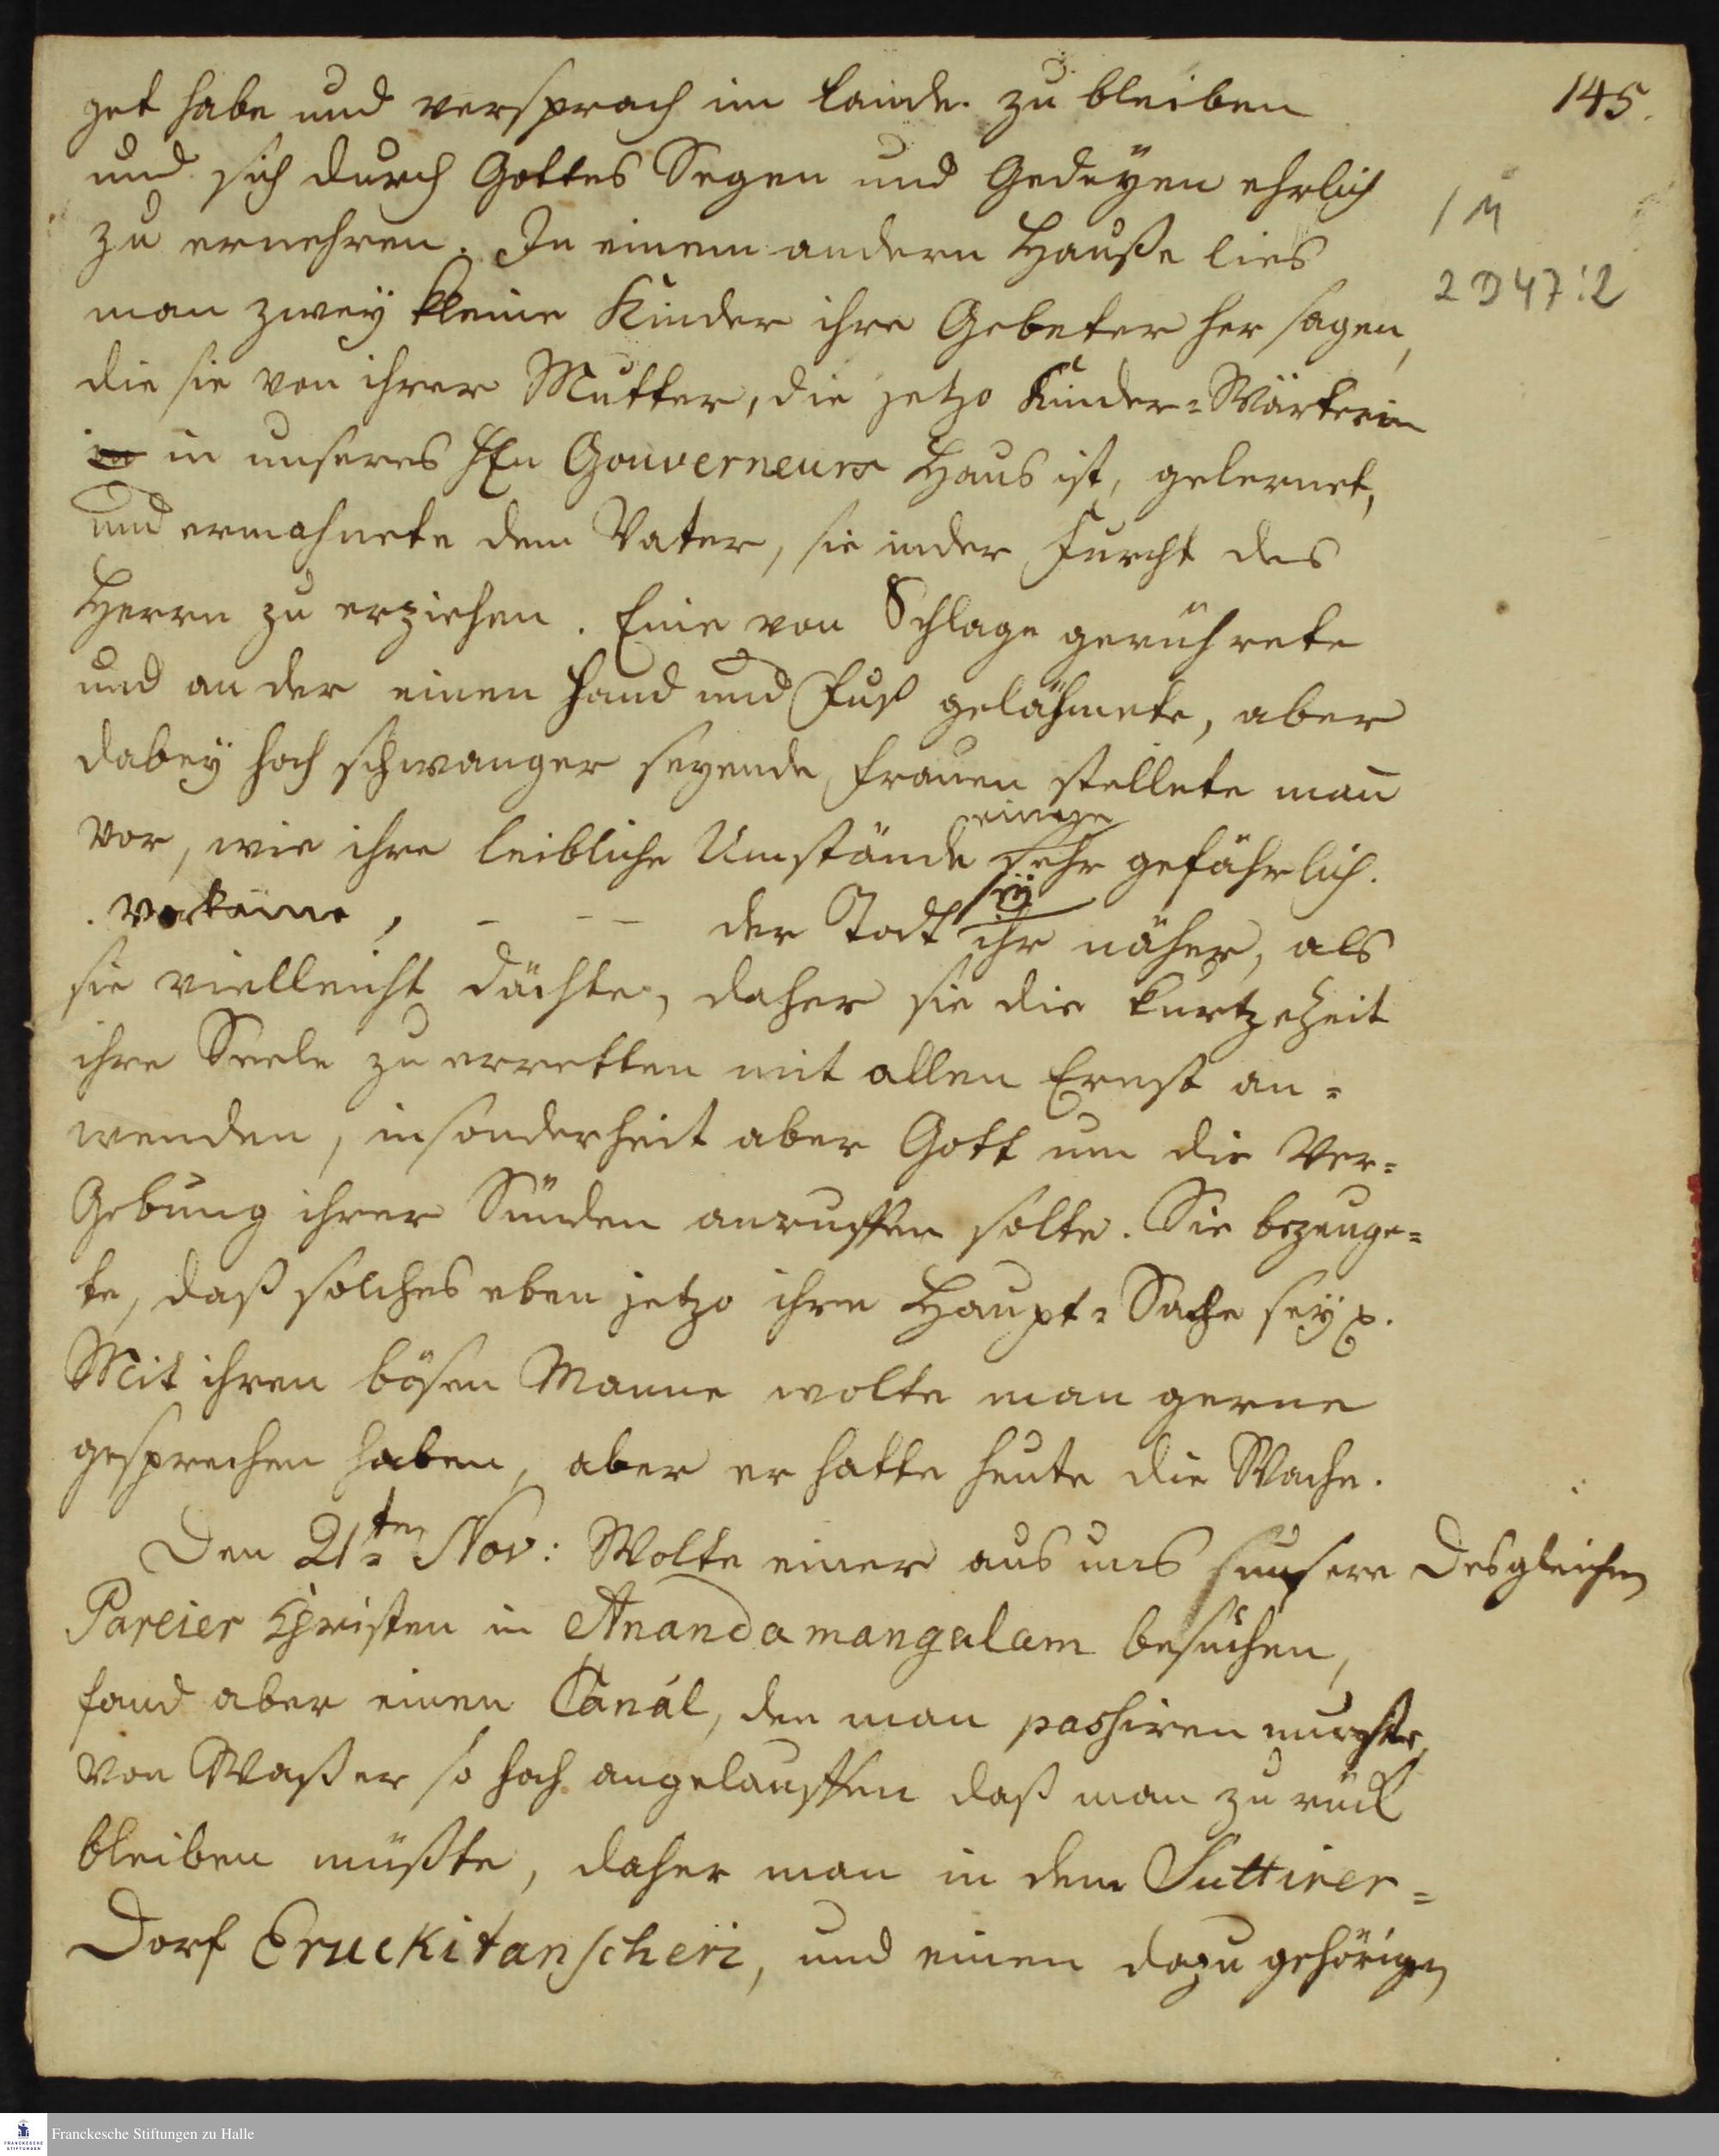 145.
1 M
2 D 47:2
get habe und versprach im Lande zu bleiben
und sich durch Gottes Segen und Gedeÿen ehrlich
zu ernehren. In einem andern Hauße lies
man zweÿ kleine Kinder ihre Gebeter her sagen,
die sie von ihrer Mutter, die jetzo Kinder-Wärterin
in in unseres HEn Gouverneurs Haus ist, gelernet,
und ermahnete dem Vater, sie in der Furcht des
Herrn zu erziehen. Eine von Schlage gerührete
und an der einen Hand und Fuß gelähmete, aber
dabeÿ hoch schwanger seyende Frauen stellete man̄
vor, wie ihre leibliche Umstände
einige
sehr gefährlich.
vorkäme, – – – der Todt
seÿ
ihr näher, als
sie vielleicht dächte, daher sie die kurtze Zeit
ihre Seele zu erretten mit allen Ernst an=
wenden, insonderheit aber Gott um die Ver=
Gebung ihrer Sünden anruffen solte. Sie bezeuge=
te, daß solches eben jetzo ihre Haupt=Sache seÿ p.
Mit ihren bösen Manne wolte man gerne
gesprechen haben, aber er hatte heute die Wache.
Den 21ten Nov: Wolte einer aus uns unsere Desgleichen
Pareier Christen in Anandamangalam besuchen,
fand aber einen Canal, den man passiren muste,
von Waßer so hoch angelauffen daß man zurück
bleiben müßte, daher man in dem Suttirer=
Dorf Eruckitanscheri, und einen dazu gehörigen
Franckesche Stiftungen zu Halle